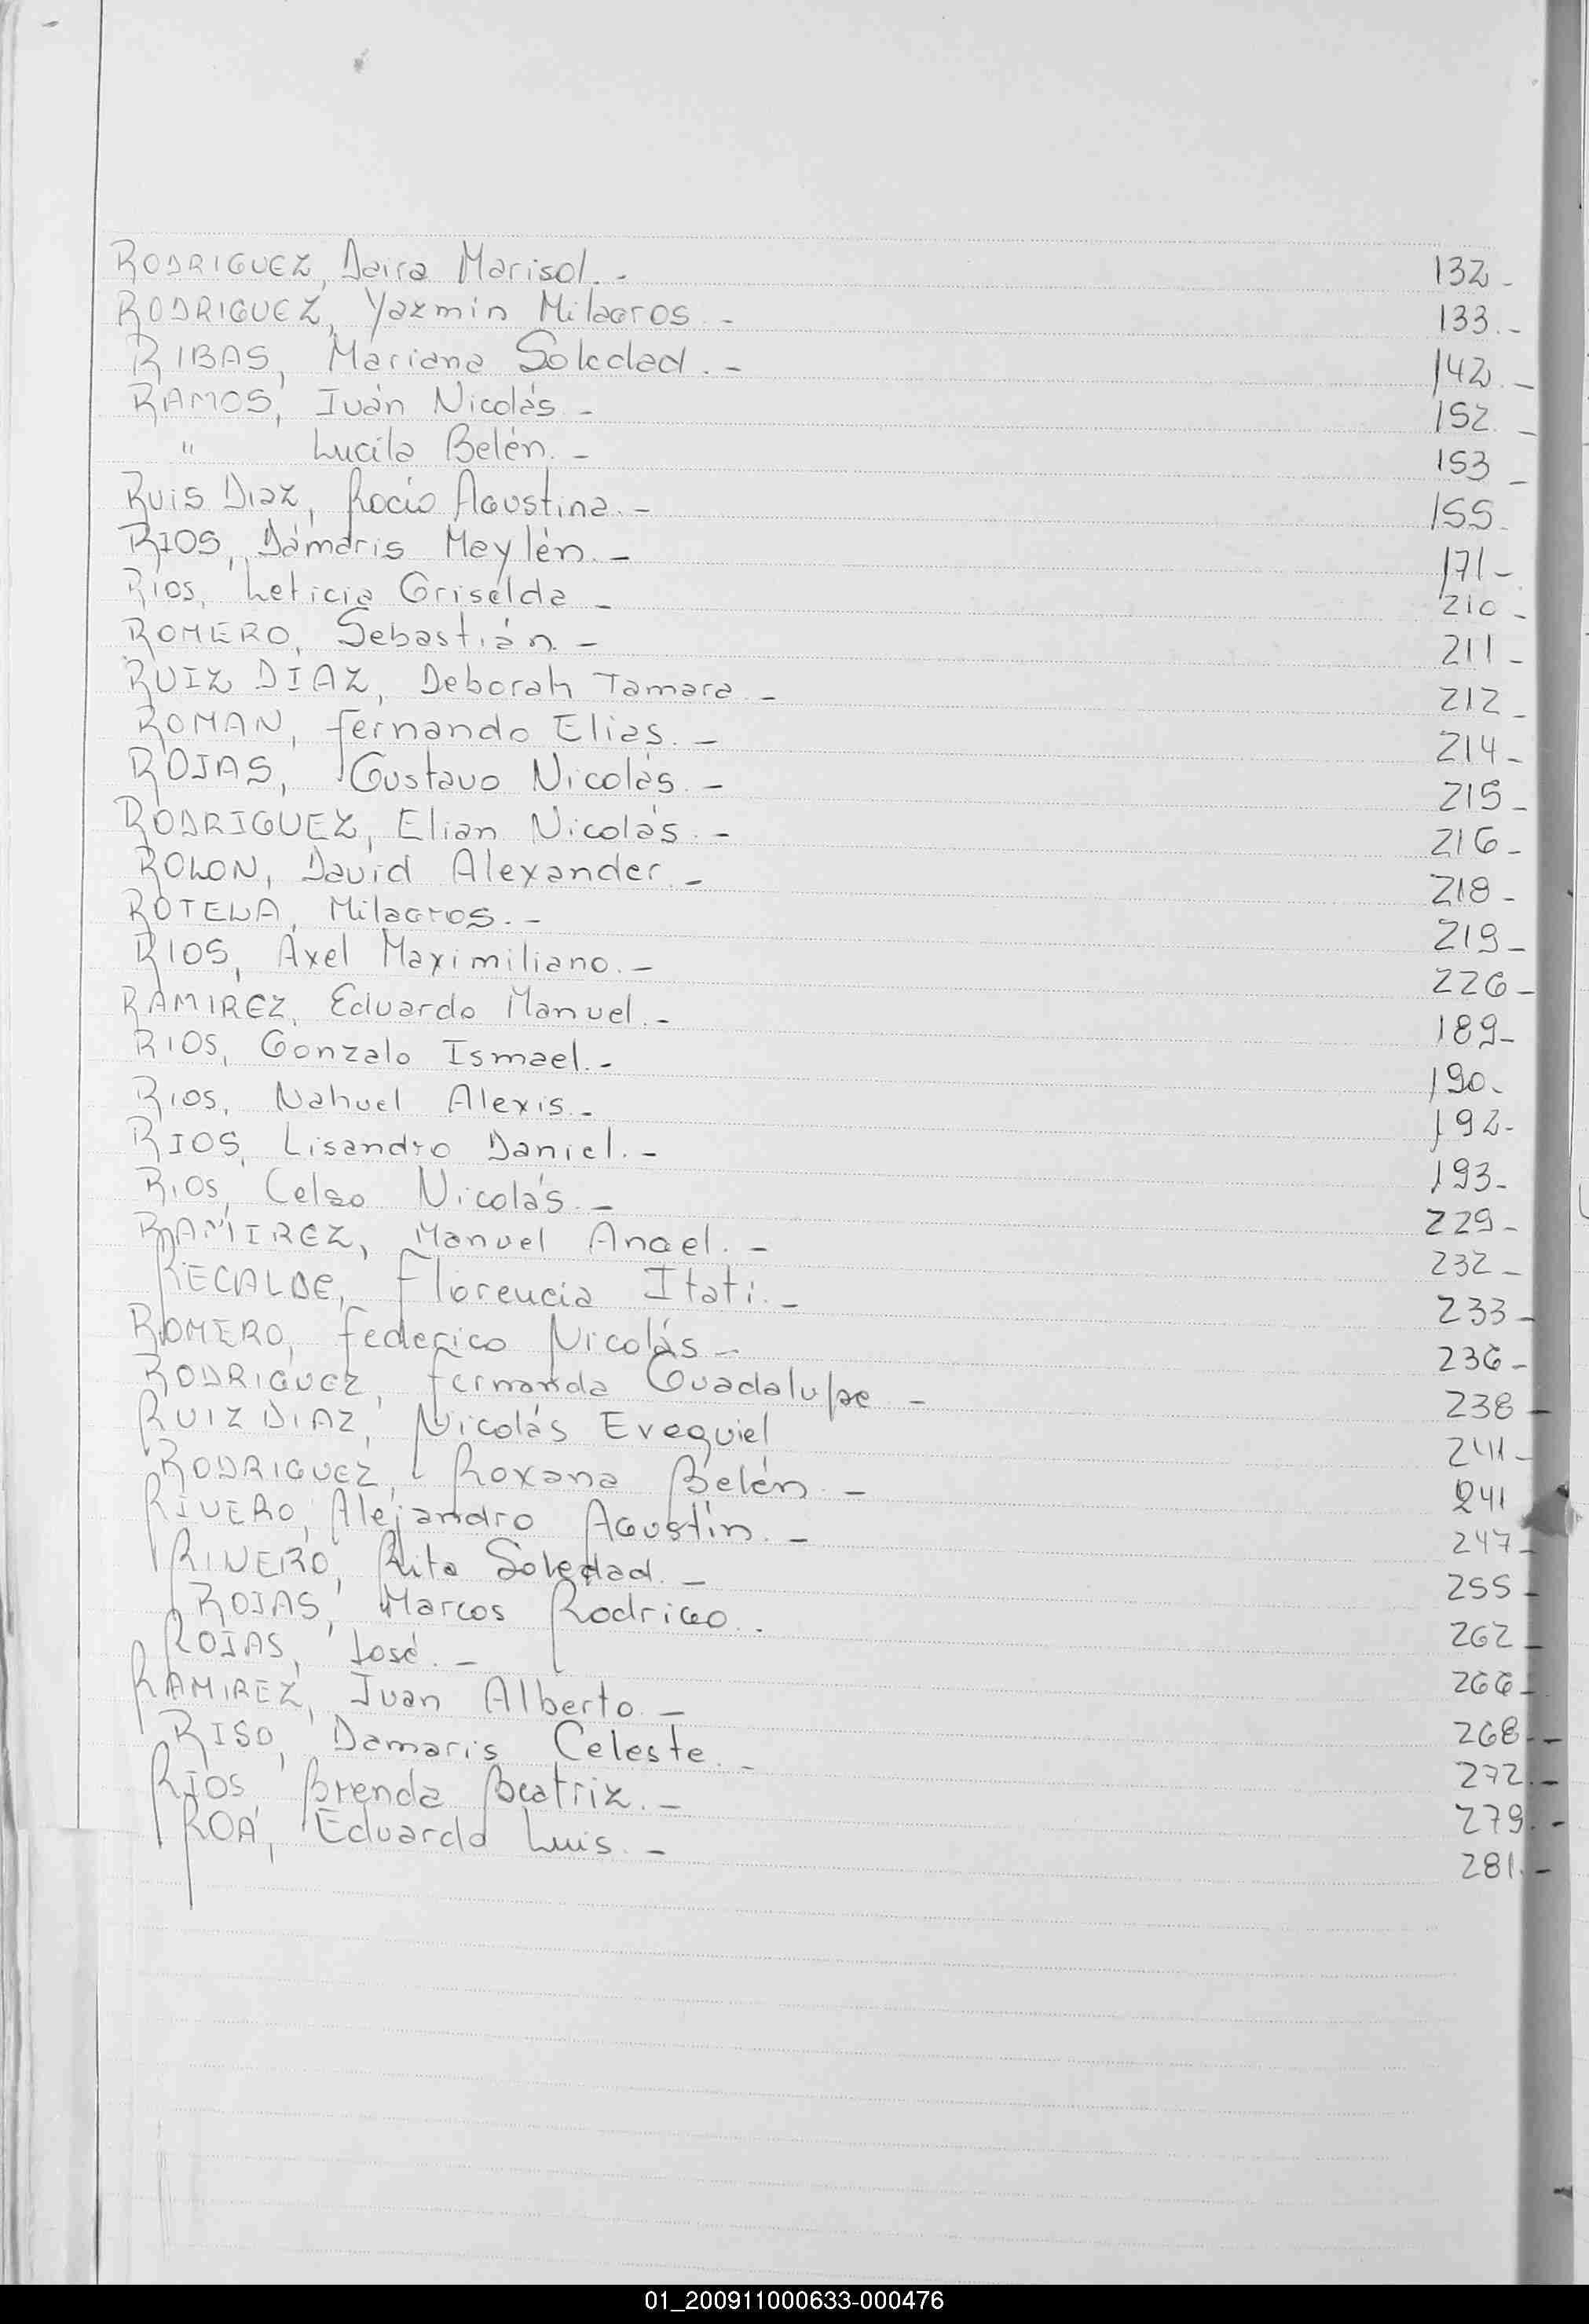 RODRIGUEZ, Daira Marisol.- 132-
RODRIGUEZ, Yazmín Milagros.- 133.-
RIBAS, Mariana Soledad.- 142.-
RAMOS, Iván Nicolás.- 152.-
" Lucila Belén.- 153-
RUIS DIAZ, Rocío Agustina.- 155-
RIOS, Dámaris Meylén.- 171-
Rios, Leticia Griselda- 210-
ROMERO, Sebastián.- 211-
RUIZ DIAZ, Deborah Tamara- 212-
ROMAN, Fernando Elias.- 214-
ROJAS, Gustavo Nicolás.- 215-
RODRIGUEZ, Elian Nicolás.- 216-
ROLON, David Alexander.- 218-
ROTELA, Milagros.- 219-
RIOS, Axel Maximiliano.- 226-
RAMIREZ, Eduardo Manuel.- 189-
RIOS, Gonzalo Ismael.- 190-
RIOS, Nahuel Alexis.- 192-
RIOS, Lisandro Daniel.- 193-
RIOS, Celso Nicolás.- 229-
RAMIREZ, Manuel Angel.- 232-
RECALDE, Florencia Itati.- 233-
ROMERO, Federico Nicolás- 236-
RODRIGUEZ, Fernanda Guadalupe- 238-
RUIZ DIAZ, Nicolás Evequiel 241-
RODRIGUEZ, Roxana Belén.- 241
RIVERO, Alejandro Agustín.- 247-
RINERO, Rita Soledad.- 255-
ROJAS, Marcos Rodrigo.. 262-
ROJAS, José.- 266-
RAMIREZ, Juan Alberto- 268.-
RISO, Damaris Celeste.- 272.-
RIOS, Brenda Beatriz.- 279.-
ROA, Eduardo Luis.- 281.-
01_200911000633-000476